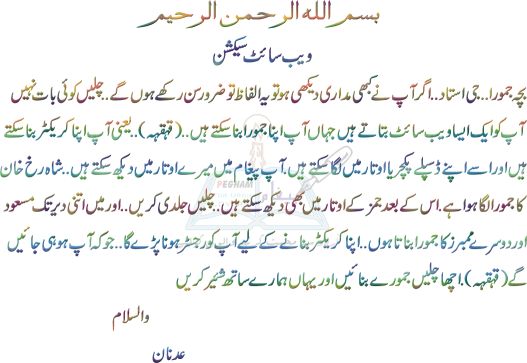 بسم الله الرحمن الرحیم
ویب سائٹ سیکشن
بچہ جمورا.. جی استاد.. اگر آپ نے کبھی مداری دیکھی ہو تو یہ الفاظ تو ضرور سن رکھے ہوں گے.. چلیں کوئی بات نہیں
آپ کو ایک ایسا ویب سائٹ بتاتے ہیں جہاں آپ اپنا جمورا بنا سکتے ہیں.. (قہقہہ).. یعنی آپ اپنا کریکٹر بنا سکتے
ہیں اور اسے اپنے ڈسپلے پکچر یا اوتار میں لگا سکتے ہیں. آپ پیغام میں میرے اوتار میں دیکھ سکتے ہیں.. شاہ رخ خان
کا جمورا لگا ہوا ہے. اس کے بعد جمز کے اوتار میں بھی دیکھ سکتے ہیں.. چلیں جلدی کریں.. اور میں اتنی دیر تک مسعود
اور دوسرے ممبرز کا جمورا بناتا ہوں.. اپنا کریکٹر بنانے کے لیے آپ کو رجسٹر ہونا پڑے گا.. جو کہ آپ ہو ہی جائیں
گے (قہقہہ). اچھا چلیں جمورے بنائیں اور یہاں ہمارے ساتھ شئیر کریں
والسلام
عدنان
PEGHAM